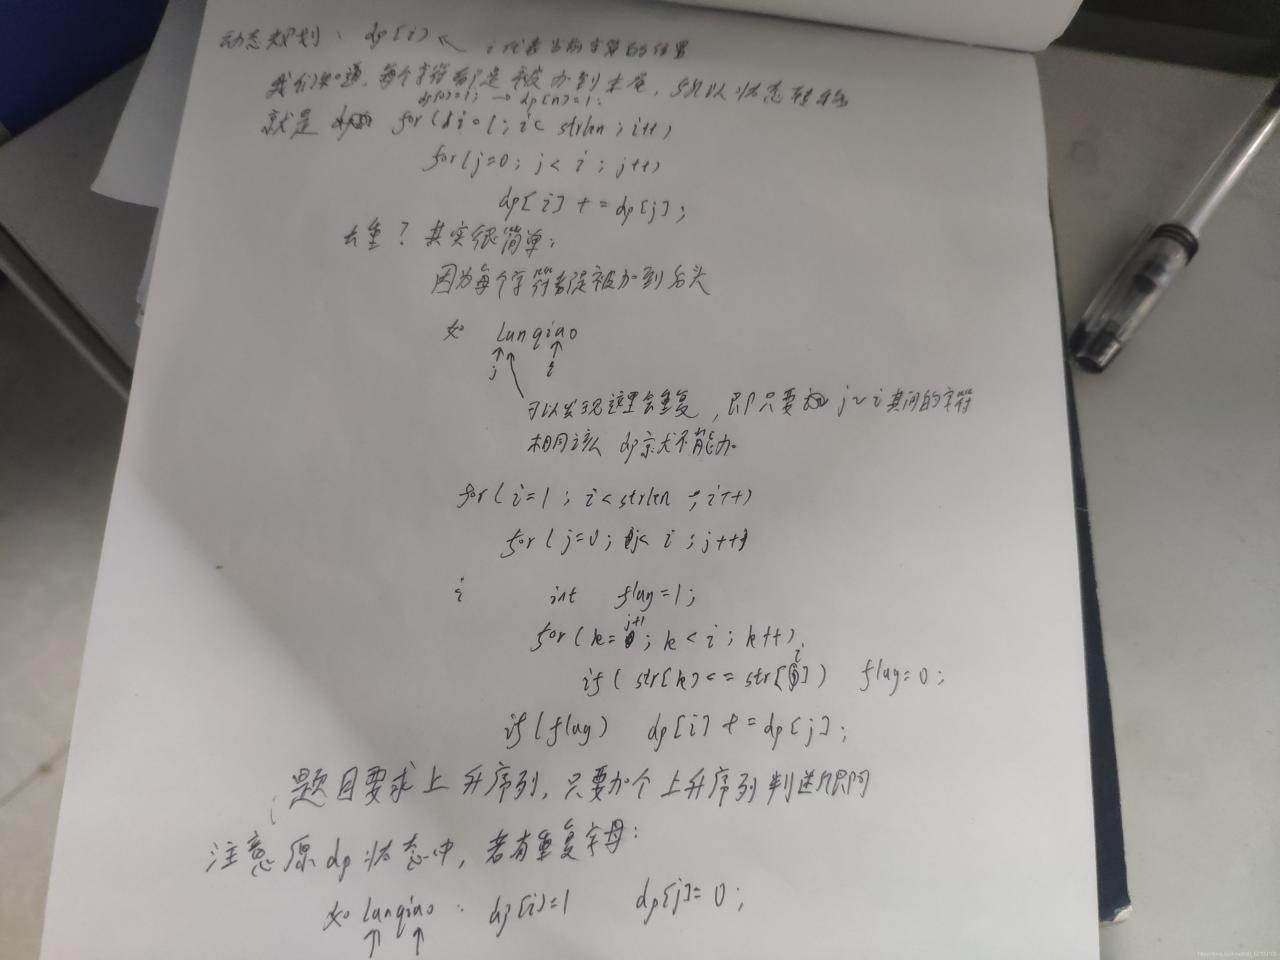 动态规划: dp[i] ← i代表当前字符的位置
我们知道,每个字符都是被加到末尾,所以状态转移
dp[0]=1; → dp[n]=1.
就是 for(i=1; i< strlen ; i++)
for(j=0; j< i ; j++)
dp[i] += dp[j];
去重?其实很简单:
因为每个字符都是被加到后头
如 lanqiao
j i
可以发现这里会重复,即只要 j~i 其间的字符
相同该 dp就不能加
for(i=1; i<strlen ; i++)
for(j=0; j< i ; j++)
i int flag=1;
for(k=j+1; k<i; k++)
if( str[k]== str[i]) flag=0;
if(flag) dp[i] += dp[j];
题目要求上升序列,只要加个上升序列判断即可
注意原dp状态中,若有重复字母:
如 lanqiao : dp[i]=1 dp[j]=0;